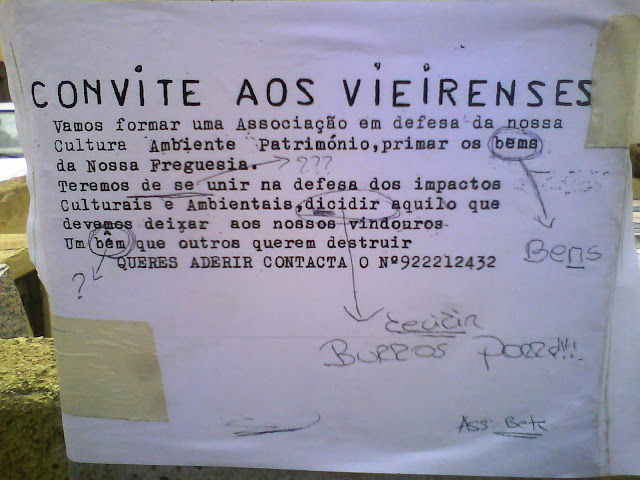 CONVITE AOS VIEIRENSES
Vamos formar uma Associação em defesa da nossa
Cultura Ambiente Património,primar os bems
da Nossa Freguesia.
???
Teremos de se unir na defesa dos impactos
Culturais e Ambientais,dicidir aquilo que
devemos deixar aos nossos vindouros
Um bém que outros querem destruir
Bens
QUERES ADERIR CONTACTA O Nº922212432
?
decidir
BURROS PORRA!!!
Ass: Beto